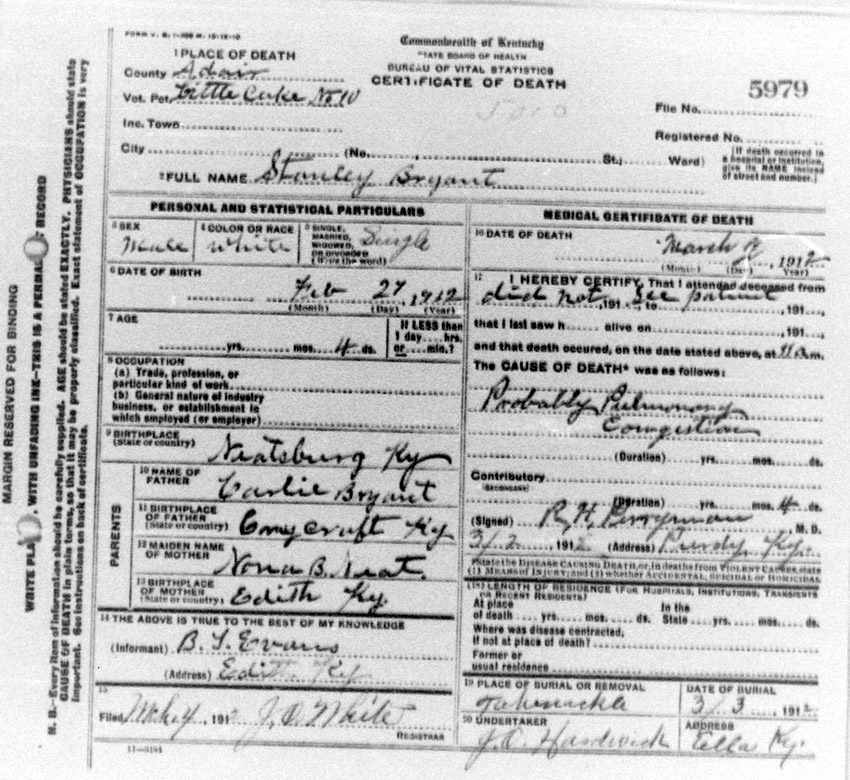 FORM V. S. 1-
Commonwealth of Kentucky
STATE BOARD OF HEALTH
BUREAU OF VITAL STATISTICS
CERTIFICATE OF DEATH
1 PLACE OF DEATH
County Adair
Vot. Pct. Little Cake No 10
Inc. Town
City (No. St.; Ward)
5979
File No.
Registered No.
[If death occurred in a hospital or institution, give its NAME instead of street and number.]
2 FULL NAME Stanley Bryant
PERSONAL AND STATISTICAL PARTICULARS
3 SEX Male
4 COLOR OR RACE White
5 SINGLE, MARRIED, WIDOWED, OR DIVORCED (Write the word) Single
6 DATE OF BIRTH
Feb 27, 1912
(Month) (Day) (Year)
7 AGE
yrs. mos. 4 ds.
If LESS than 1 day....hrs. or....min.?
8 OCCUPATION
(a) Trade, profession, or particular kind of work
(b) General nature of industry business, or establishment in which employed (or employer)
9 BIRTHPLACE (State or country) Neatsburg Ky
PARENTS
10 NAME OF FATHER Carlie Bryant
11 BIRTHPLACE OF FATHER (State or country) Ky
12 MAIDEN NAME OF MOTHER Nona B. Neat.
13 BIRTHPLACE OF MOTHER (State or country) Edith Ky.
14 THE ABOVE IS TRUE TO THE BEST OF MY KNOWLEDGE
(Informant) B. T. Evans
(Address) Edith Ky
15
Filed Mch 4, 191 J. O. White
REGISTRAR
11-3184
MEDICAL CERTIFICATE OF DEATH
16 DATE OF DEATH
March 2, 1912
(Month) (Day) Year)
17 I HEREBY CERTIFY, That I attended deceased from
did not, 191 , to See patient, 191 ,
that I last saw h alive on , 191 ,
and that death occured, on the date stated above, at 11 a m.
The CAUSE OF DEATH* was as follows:
Probably Pulmonary
Congestion
(Duration) yrs. mos. ds.
Contributory
(SECONDARY)
(Duration) yrs. mos. 4 ds.
(Signed) R. H. Perryman M. D.
3/2 1912 (Address) Purdy, Ky.
*State the DISEASE CAUSING DEATH, or, in deaths from VIOLENT CAUSES, state (1) MEANS OF INJURY; and (2) whether ACCIDENTAL, SUICIDAL or HOMICIDAL
(18) LENGTH OF RESIDENCE (FOR HOSPITALS, INSTITUTIONS, TRANSIENTS OR RECENT RESIDENTS)
At place of death yrs. mos. ds.
In the State yrs. mos. ds.
Where was disease contracted, if not at place of death?
Former or usual residence
19 PLACE OF BURIAL OR REMOVAL
DATE OF BURIAL
3/3 1912
20 UNDERTAKER
J. O. Hardwick
ADDRESS
Ella Ky.
MARGIN RESERVED FOR BINDING
WRITE PLA , WITH UNFADING INK—THIS IS A PERMA RECORD
N. B.—Every item of information should be carefully supplied. AGE should be stated EXACTLY. PHYSICIANS should state
CAUSE OF DEATH in plain terms, so that it may be properly classified. Exact statement of OCCUPATION is very
important. See instructions on back of certificate.